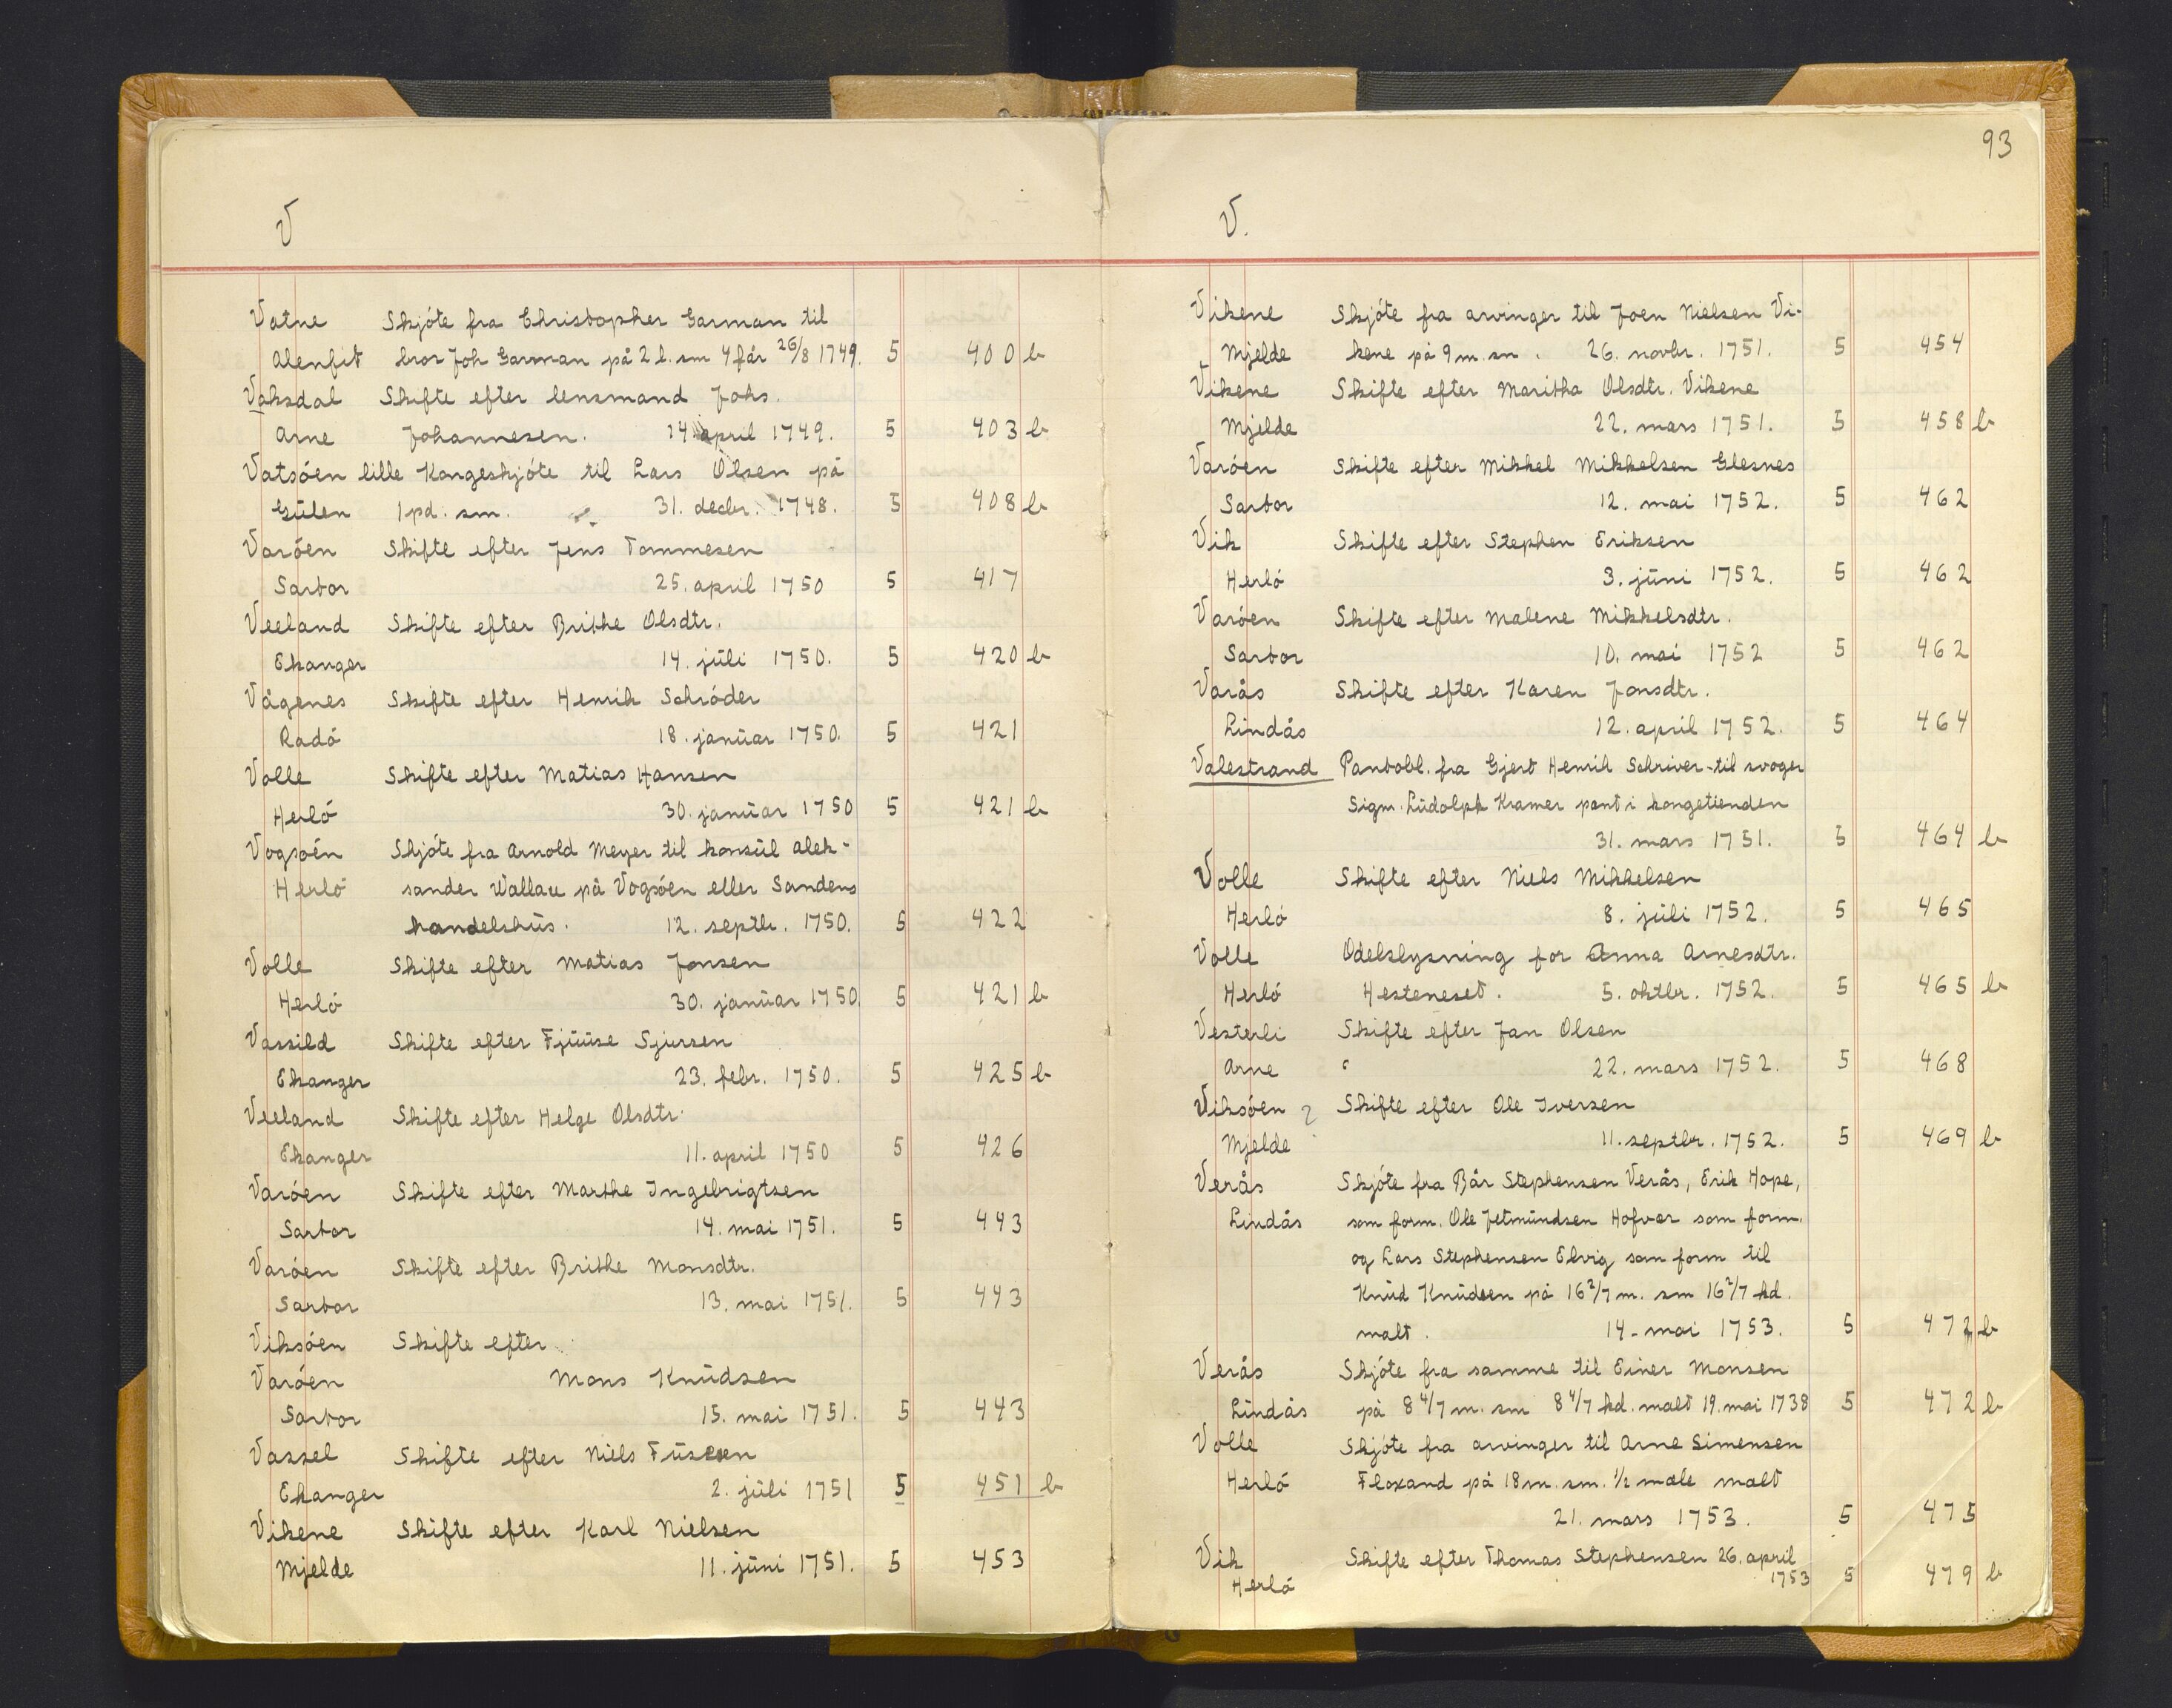 V
Vatne Skjóte fra Christopher Garman til
Alenfit bror Joh Garman på 2 l. sm 4 får 26/8 1749. 5 400 b
Vaksdal Skifte efter lensmand Johs.
Arne Johannesen. 14 april 1749. 5 403 b
Vatsóen lille Kongeskjóte til Lars Olsen på
Gülen 1 pd. sm. 31. decbr. 1748. 5 408 b
Varóen Skifte efter Jens Tommesen
Sartor 25. april 1750 5 417
Veeland Skifte efter Brithe Olsdtr.
Ekanger 14. jüli 1750. 5 420 b
Vågenes Skifte efter Henrik Schróder
Radó 18. janüar 1750. 5 421
Volle Skifte efter Matias Hansen
Herló 30. janüar 1750 5 421 b
Vogsóen Skjóte fra Arnold Meyer til konsül Alek-
Herló sander Wallace på Vogsóen eller Sandens
handelshüs. 12. septbr. 1750. 5 422
Volle Skifte efter Matias Jonsen
Herló 30. janüar 1750 5 421 b
Vassild Skifte efter Fjüüse Sjursen
Ekanger 23. febr. 1750. 5 425 b
Veeland Skifte efter Helge Olsdtr.
Ekanger 11. april 1750 5 426
Varóen Skifte efter Marthe Ingebrigtsen
Sartor 14. mai 1751. 5 443
Varóen Skifte efter Brithe Monsdtr.
Sartor 13. mai 1751. 5 443
Viksóen Skifte efter
Varóen Mons Knüdsen
Sartor 15. mai 1751. 5 443
Vassel Skifte efter Niels Füssen
Ekanger 2. jüli 1751 5 451 b
Vikene Skifte efter Karl Nielsen
Mjelde 11. jüni 1751. 5 453
93
V.
Vikene Skjóte fra arvinger til Joen Nielsen Vi-
Mjelde kene på 9 m. sn. 26. novbr. 1751. 5 454
Vikene Skifte efter Maritha Olsdtr. Vikene
Mjelde 22. mars 1751. 5 458 b
Varóen Skifte efter Mikkel Mikkelsen Glesnes
Sartor 12. mai 1752. 5 462
Vik Skifte efter Stephen Eriksen
Herló 3. jüni 1752. 5 462
Varóen Skifte efter Malene Mikkelsdtr.
Sartor 10. mai 1752 5 462
Varås Skifte efter Karen Jonsdtr.
Lindås 12. april 1752. 5 464
Valestrand Pantobl. fra Gjert Henrik Schriver til svoger
Sigm. Lüdolph Kramer pant i kongetienden
31. mars 1751. 5 464 b
Volle Skifte efter Niels Mikkelsen
Herló 8. jüli 1752. 5 465
Volle Odelslysning for Anna Arnesdtr.
Herló Hesteneset. 5. oktbr. 1752. 5 465 b
Vesterli Skifte efter Jan Olsen
Arne 22. mars 1752. 5 468
Viksóen ? Skifte efter Ole Iversen
Mjelde 11. septbr. 1752. 5 469 b
Verås Skjóte fra Bår Stephensen Verås, Erik Hope,
Lindås som form. Ole Jetmündsen Hofvar som form.
og Lars Stephensen Elvig som form til
Knüd Knüdsen på 16 2/7 m. sm 16 2/7 kd.
malt. 14. mai 1753. 5 472 b
Verås Skjóte fra samme til Einer Monsen
Lindås på 8 4/7 m. sm 8 4/7 kd. malt 19. mai 1738 5 472 b
Volle Skjóte fra arvinger til Arne Simensen
Herló Floxand på 18 m. sm. 1/2 mæle malt
21. mars 1753. 5 475
Vik Skifte efter Thomas Stephensen 26. april
Herló 1753 5 479 b